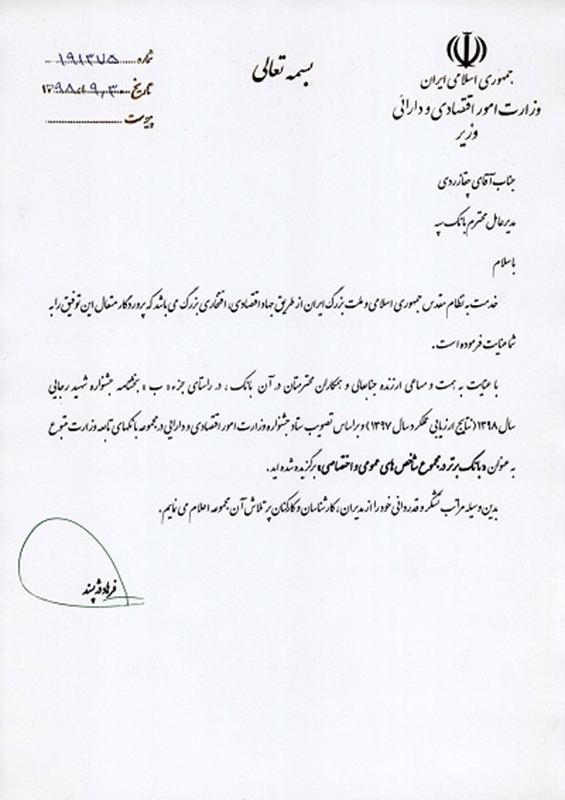 بسمه تعالی
جمهوری اسلامی ایران
وزارت امور اقتصادی و دارائی
وزیر
شماره ۱۹۱۳۷۵
تاریخ ۱۳۹۸/۰۹/۳۰
پیوست
جناب آقای چقازردی
مدیرعامل محترم بانک سپه
با سلام
خدمت به نظام مقدس جمهوری اسلامی و ملت بزرگ ایران از طریق جهاد اقتصادی، افتخاری بزرگ می باشد که پروردگار متعال این توفیق را به
شما عنایت فرموده است.
با عنایت به همت و مساعی ارزنده جنابعالی و همکاران محترمتان در آن بانک ، در راستای جزء « ب » بخشنامه جشنواره شهید رجایی
سال ۱۳۹۸ (نتایج ارزیابی عملکرد سال ۱۳۹۷) و براساس تصویب ستاد جشنواره وزارت امور اقتصادی و دارایی در مجموعه بانکهای تابعه وزارت متبوع
به عنوان «بانک برتر در مجموع شاخص های عمومی و اختصاصی» برگزیده شده اید.
بدین وسیله مراتب تشکر و قدردانی خود را از مدیران، کارشناسان و کارکنان پر تلاش آن مجموعه اعلام می نمایم.
فرهاد دژپسند